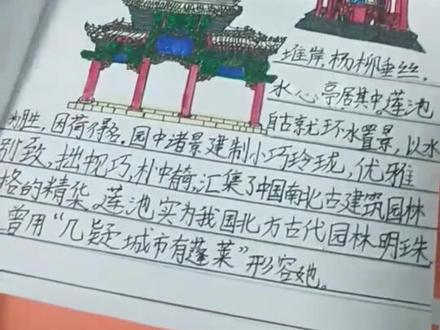 堆岸杨柳垂丝,
水心亭居其中。莲池
自古就环水置景,以水
为胜,因荷得名。园中诸景建制小巧玲珑,优雅
别致,拙枧巧,朴中藏,汇集了中国南北古建筑园林
格的精华。莲池实为我国北方古代园林明珠,
曾用“几疑城市有蓬莱”形容她。